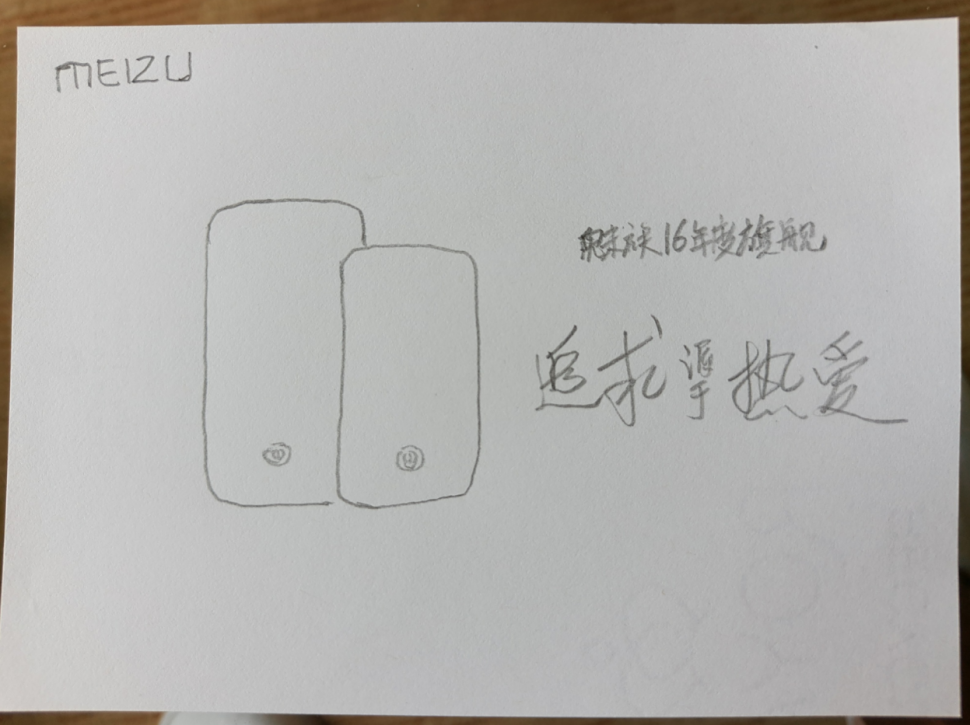 MEIZU
魅族16年度旗舰
追求源于热爱